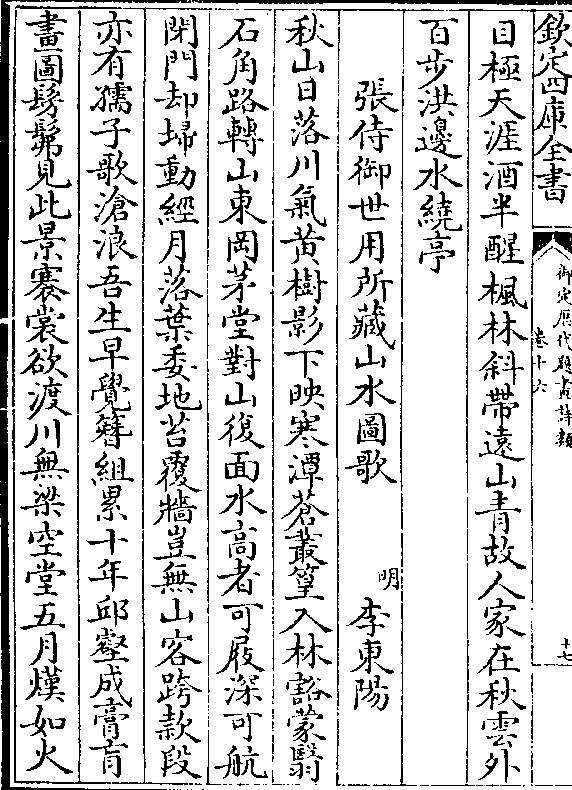 欽定四庫全書
御定歷代題畫詩類
卷十六
十七
目極天涯酒半醒楓林斜帶遠山青故人家在秋雲外
百步洪邊水繞亭
張侍御世用所藏山水圖歌
明 李東陽
秋山日落川氣黃樹影下映寒潭蒼叢篁入林豁蒙翳
石角路轉山東岡茅堂對山復面水高者可屐深可航
閉門却埽動經月落葉委地苔覆牆豈無山客跨款段
亦有孺子歌滄浪吾生早覺簪組累十年邱壑成膏肓
畫圖髣髴見此景褰裳欲渡川無梁空堂五月熯如火